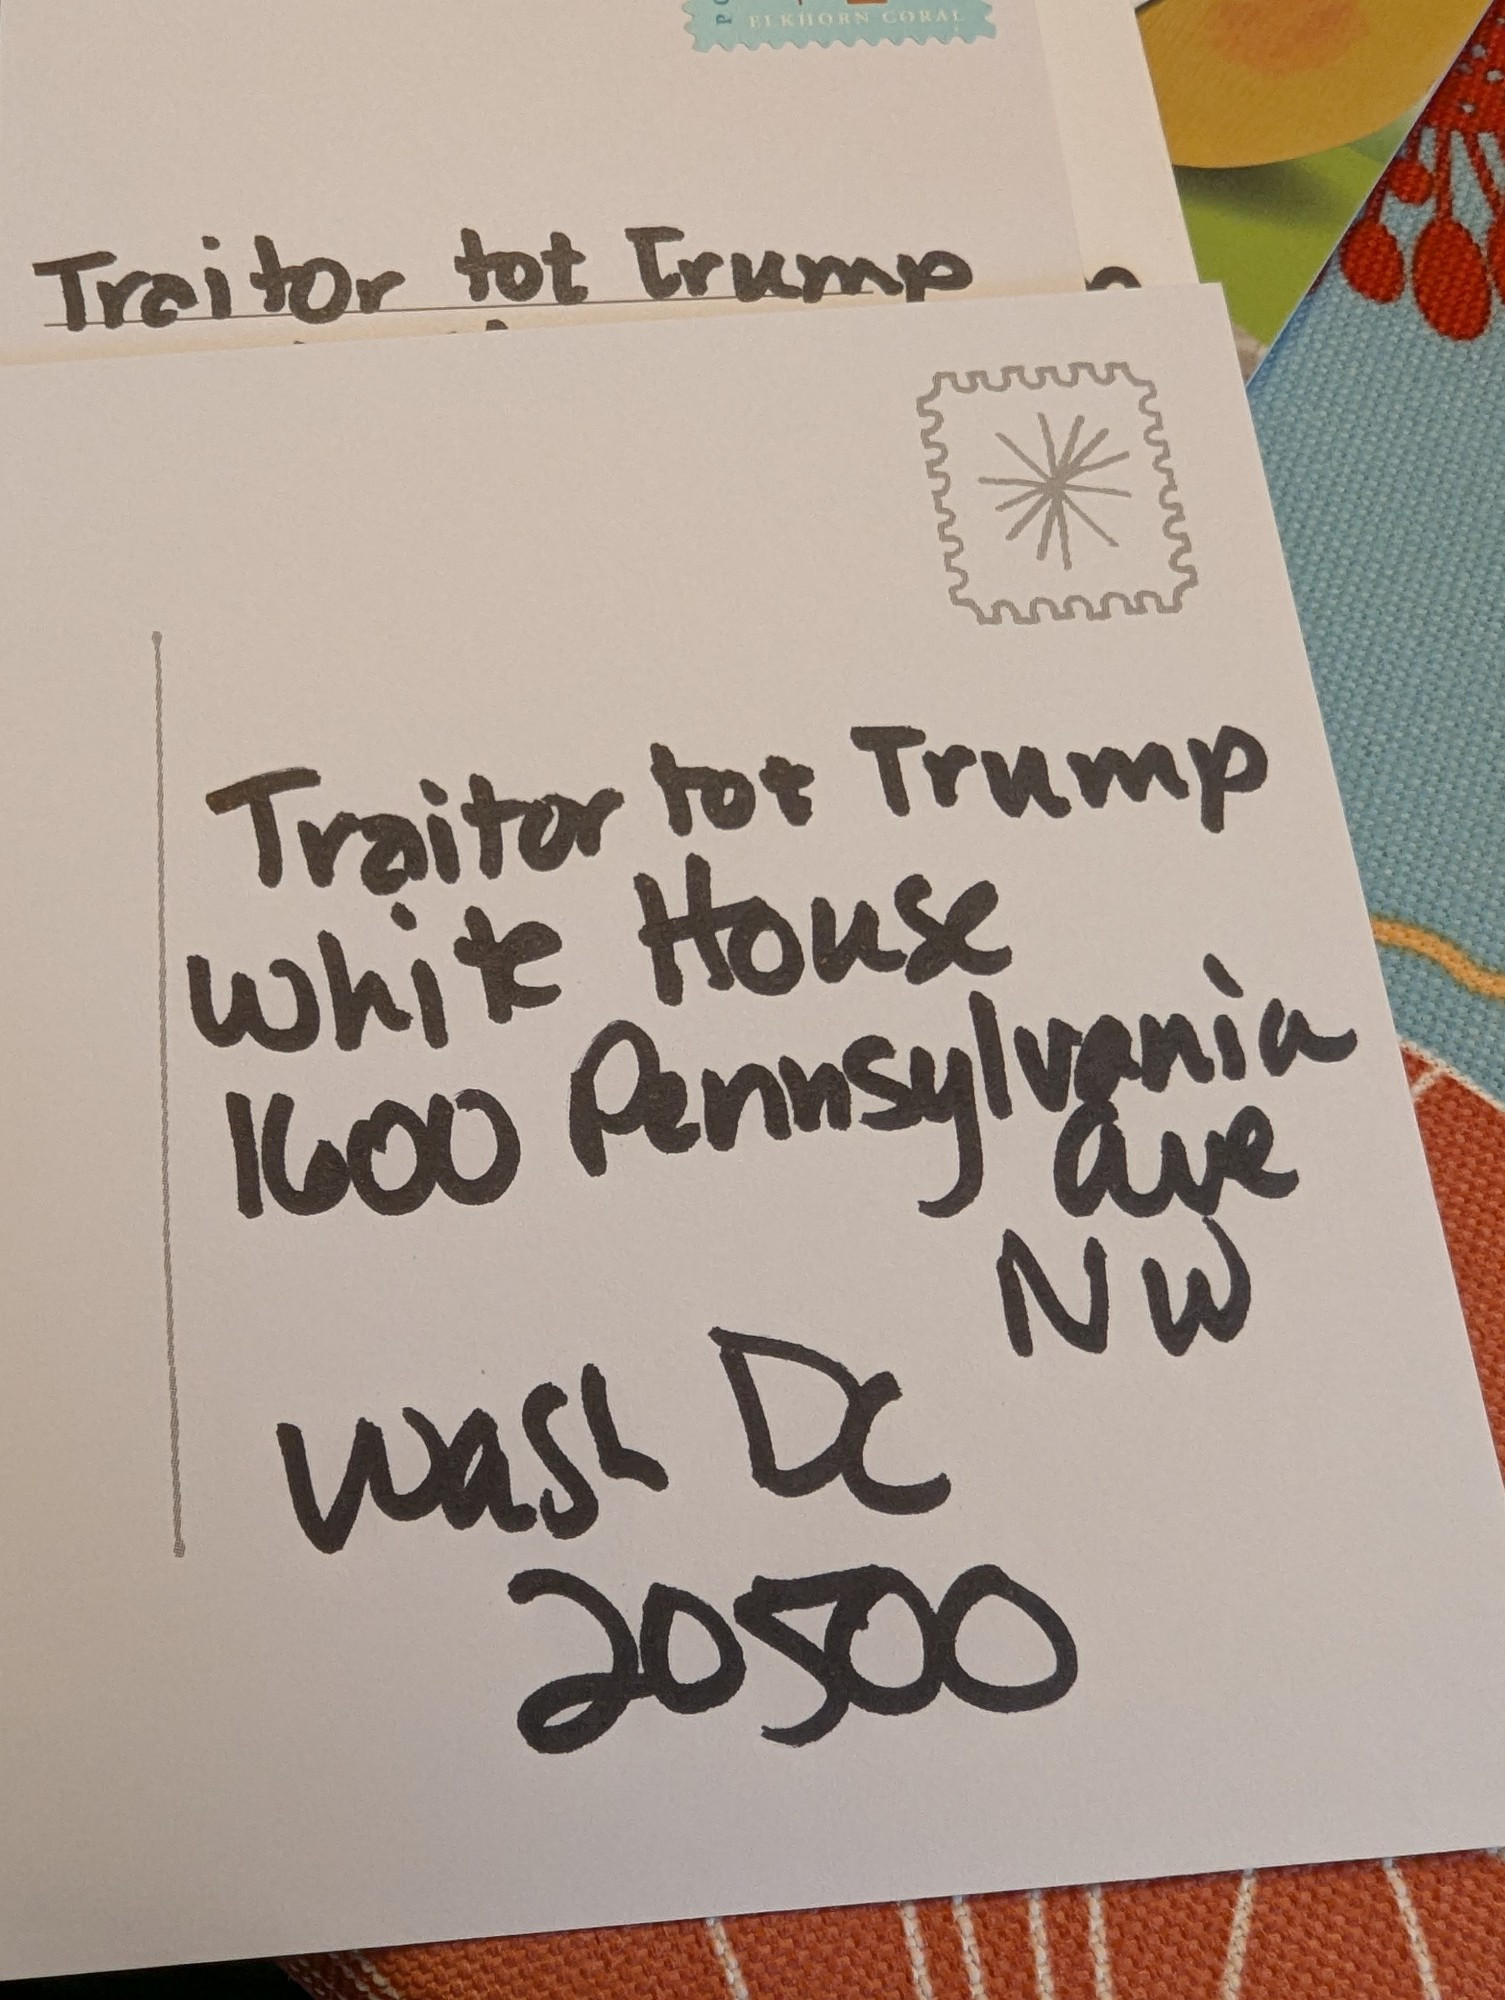 ELKHORN CORAL
Traitor tot Trump
Traitor tot Trump
White House
1600 Pennsylvania
ave
NW
Wash DC
20500